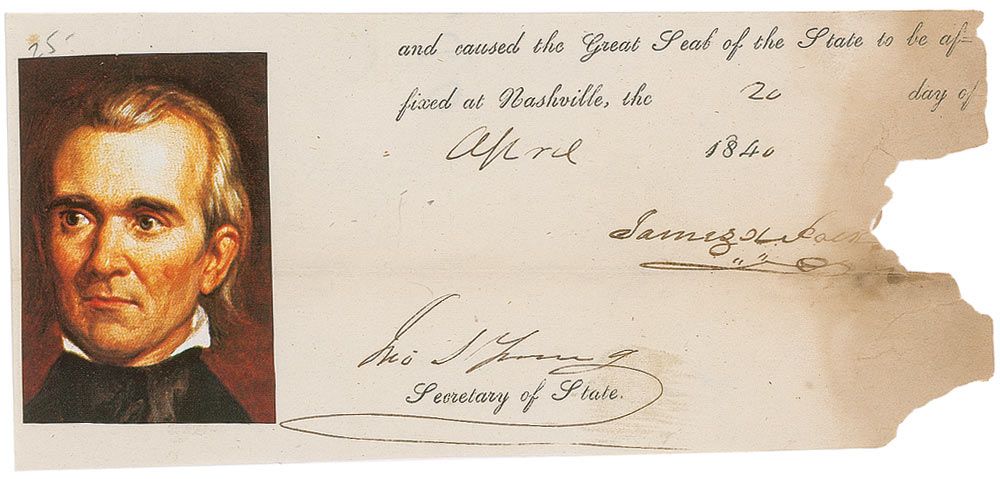 25
and caused the Great Seal of the State to be af=
fixed at Nashville, the 20 day of
April 1840
James K. Polk
Jno S Young
Secretary of State.